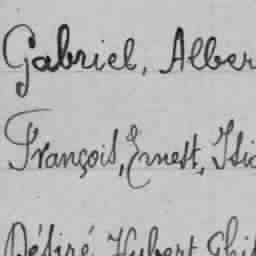 Gabriel, Alber
François, Ernest, Isi
Désiré, Hubert, Ghis